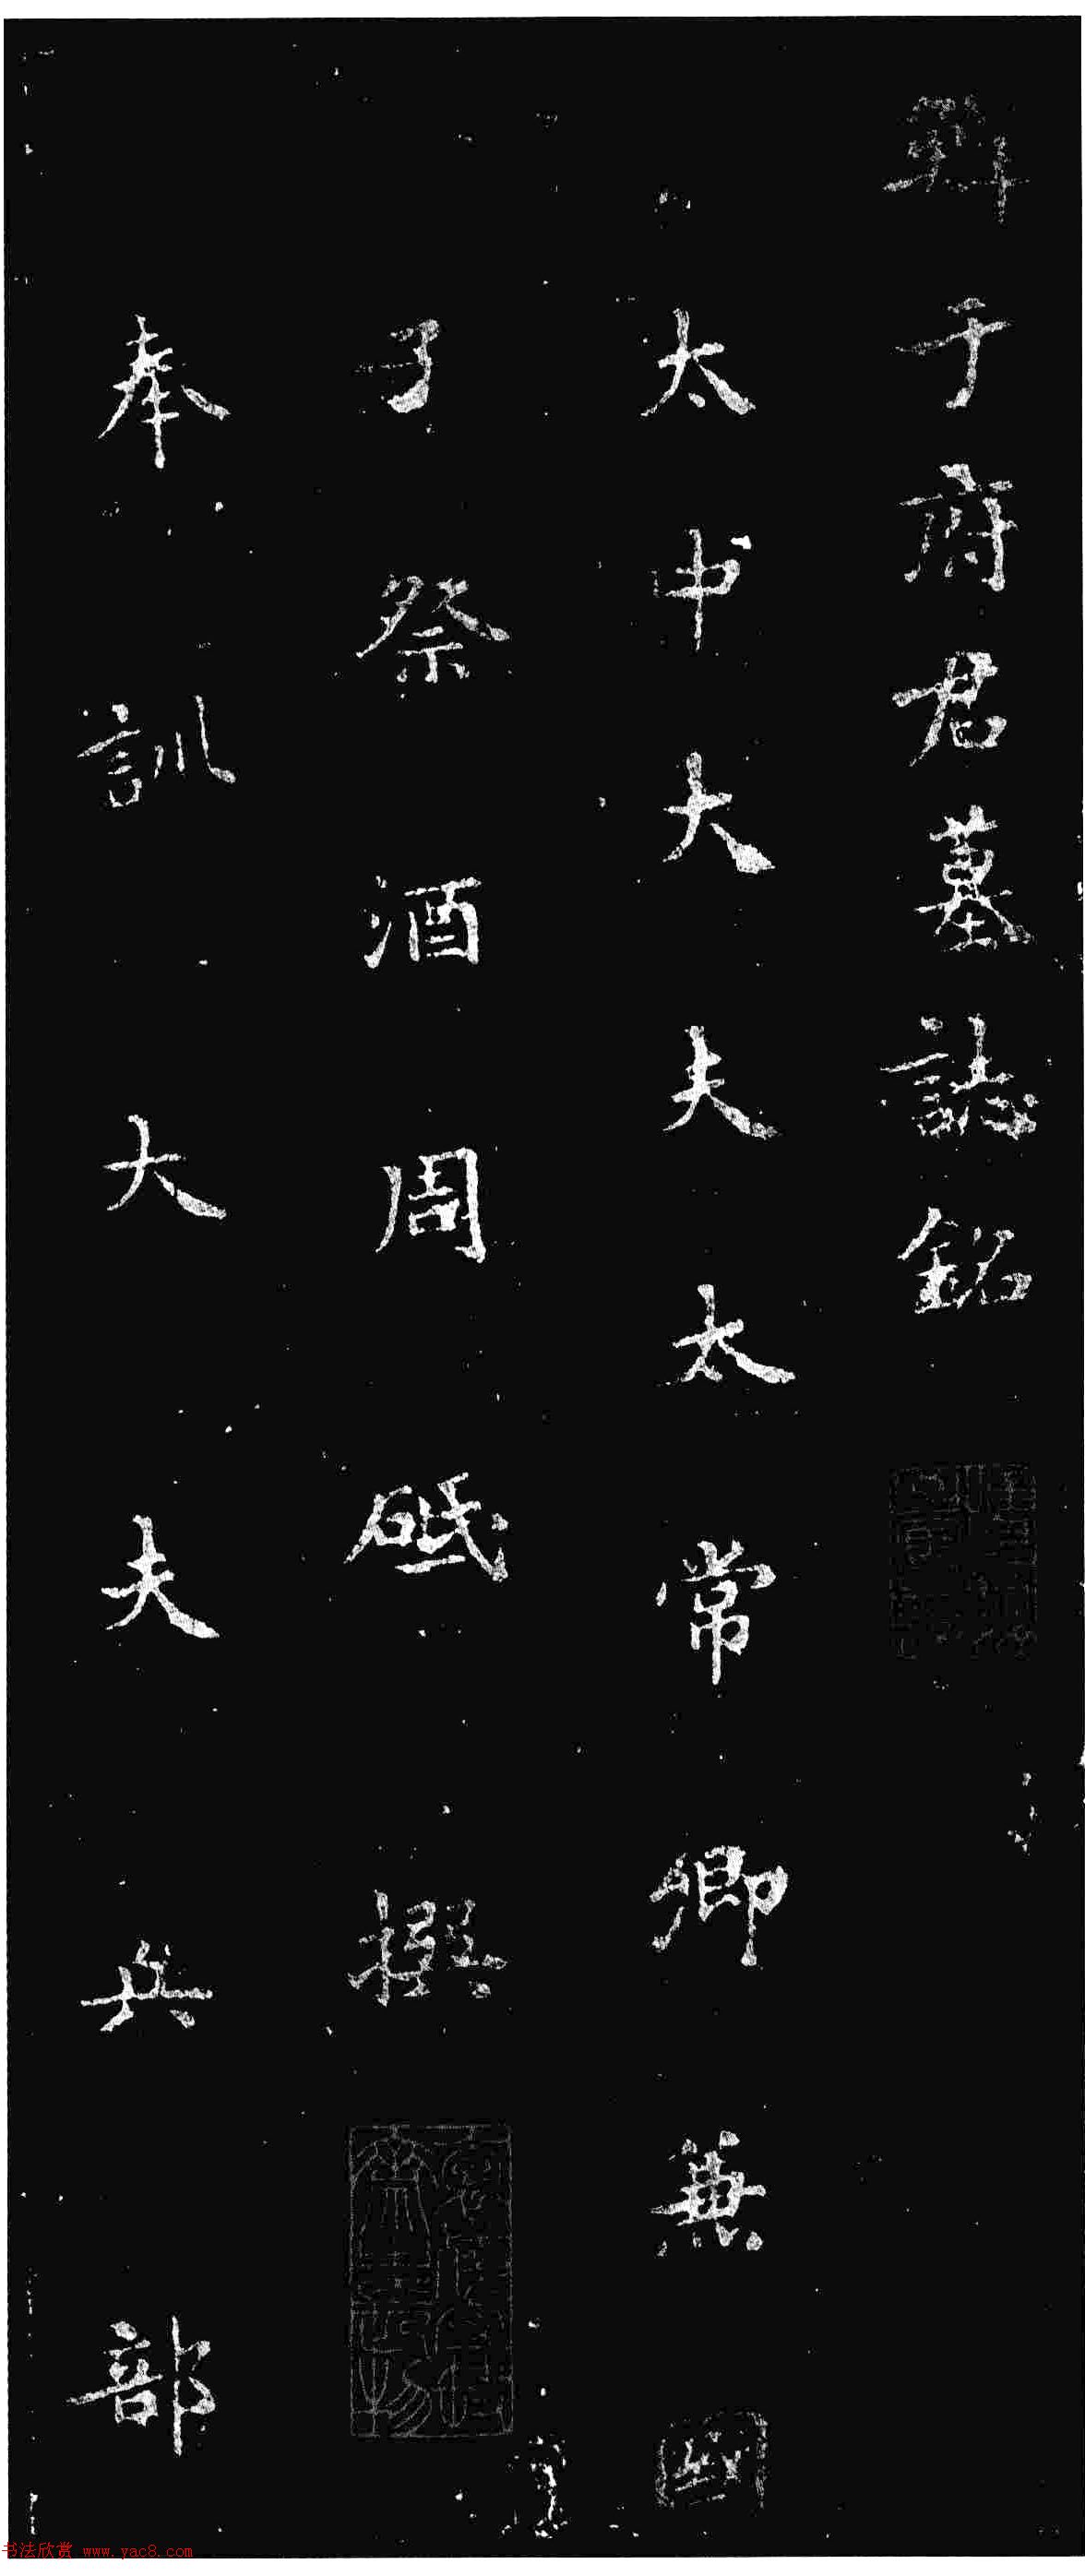 鮮于府君墓誌銘
太中大夫太常卿兼國
子祭酒周砥撰
奉訓大夫兵部
书法欣赏 www.yac8.com